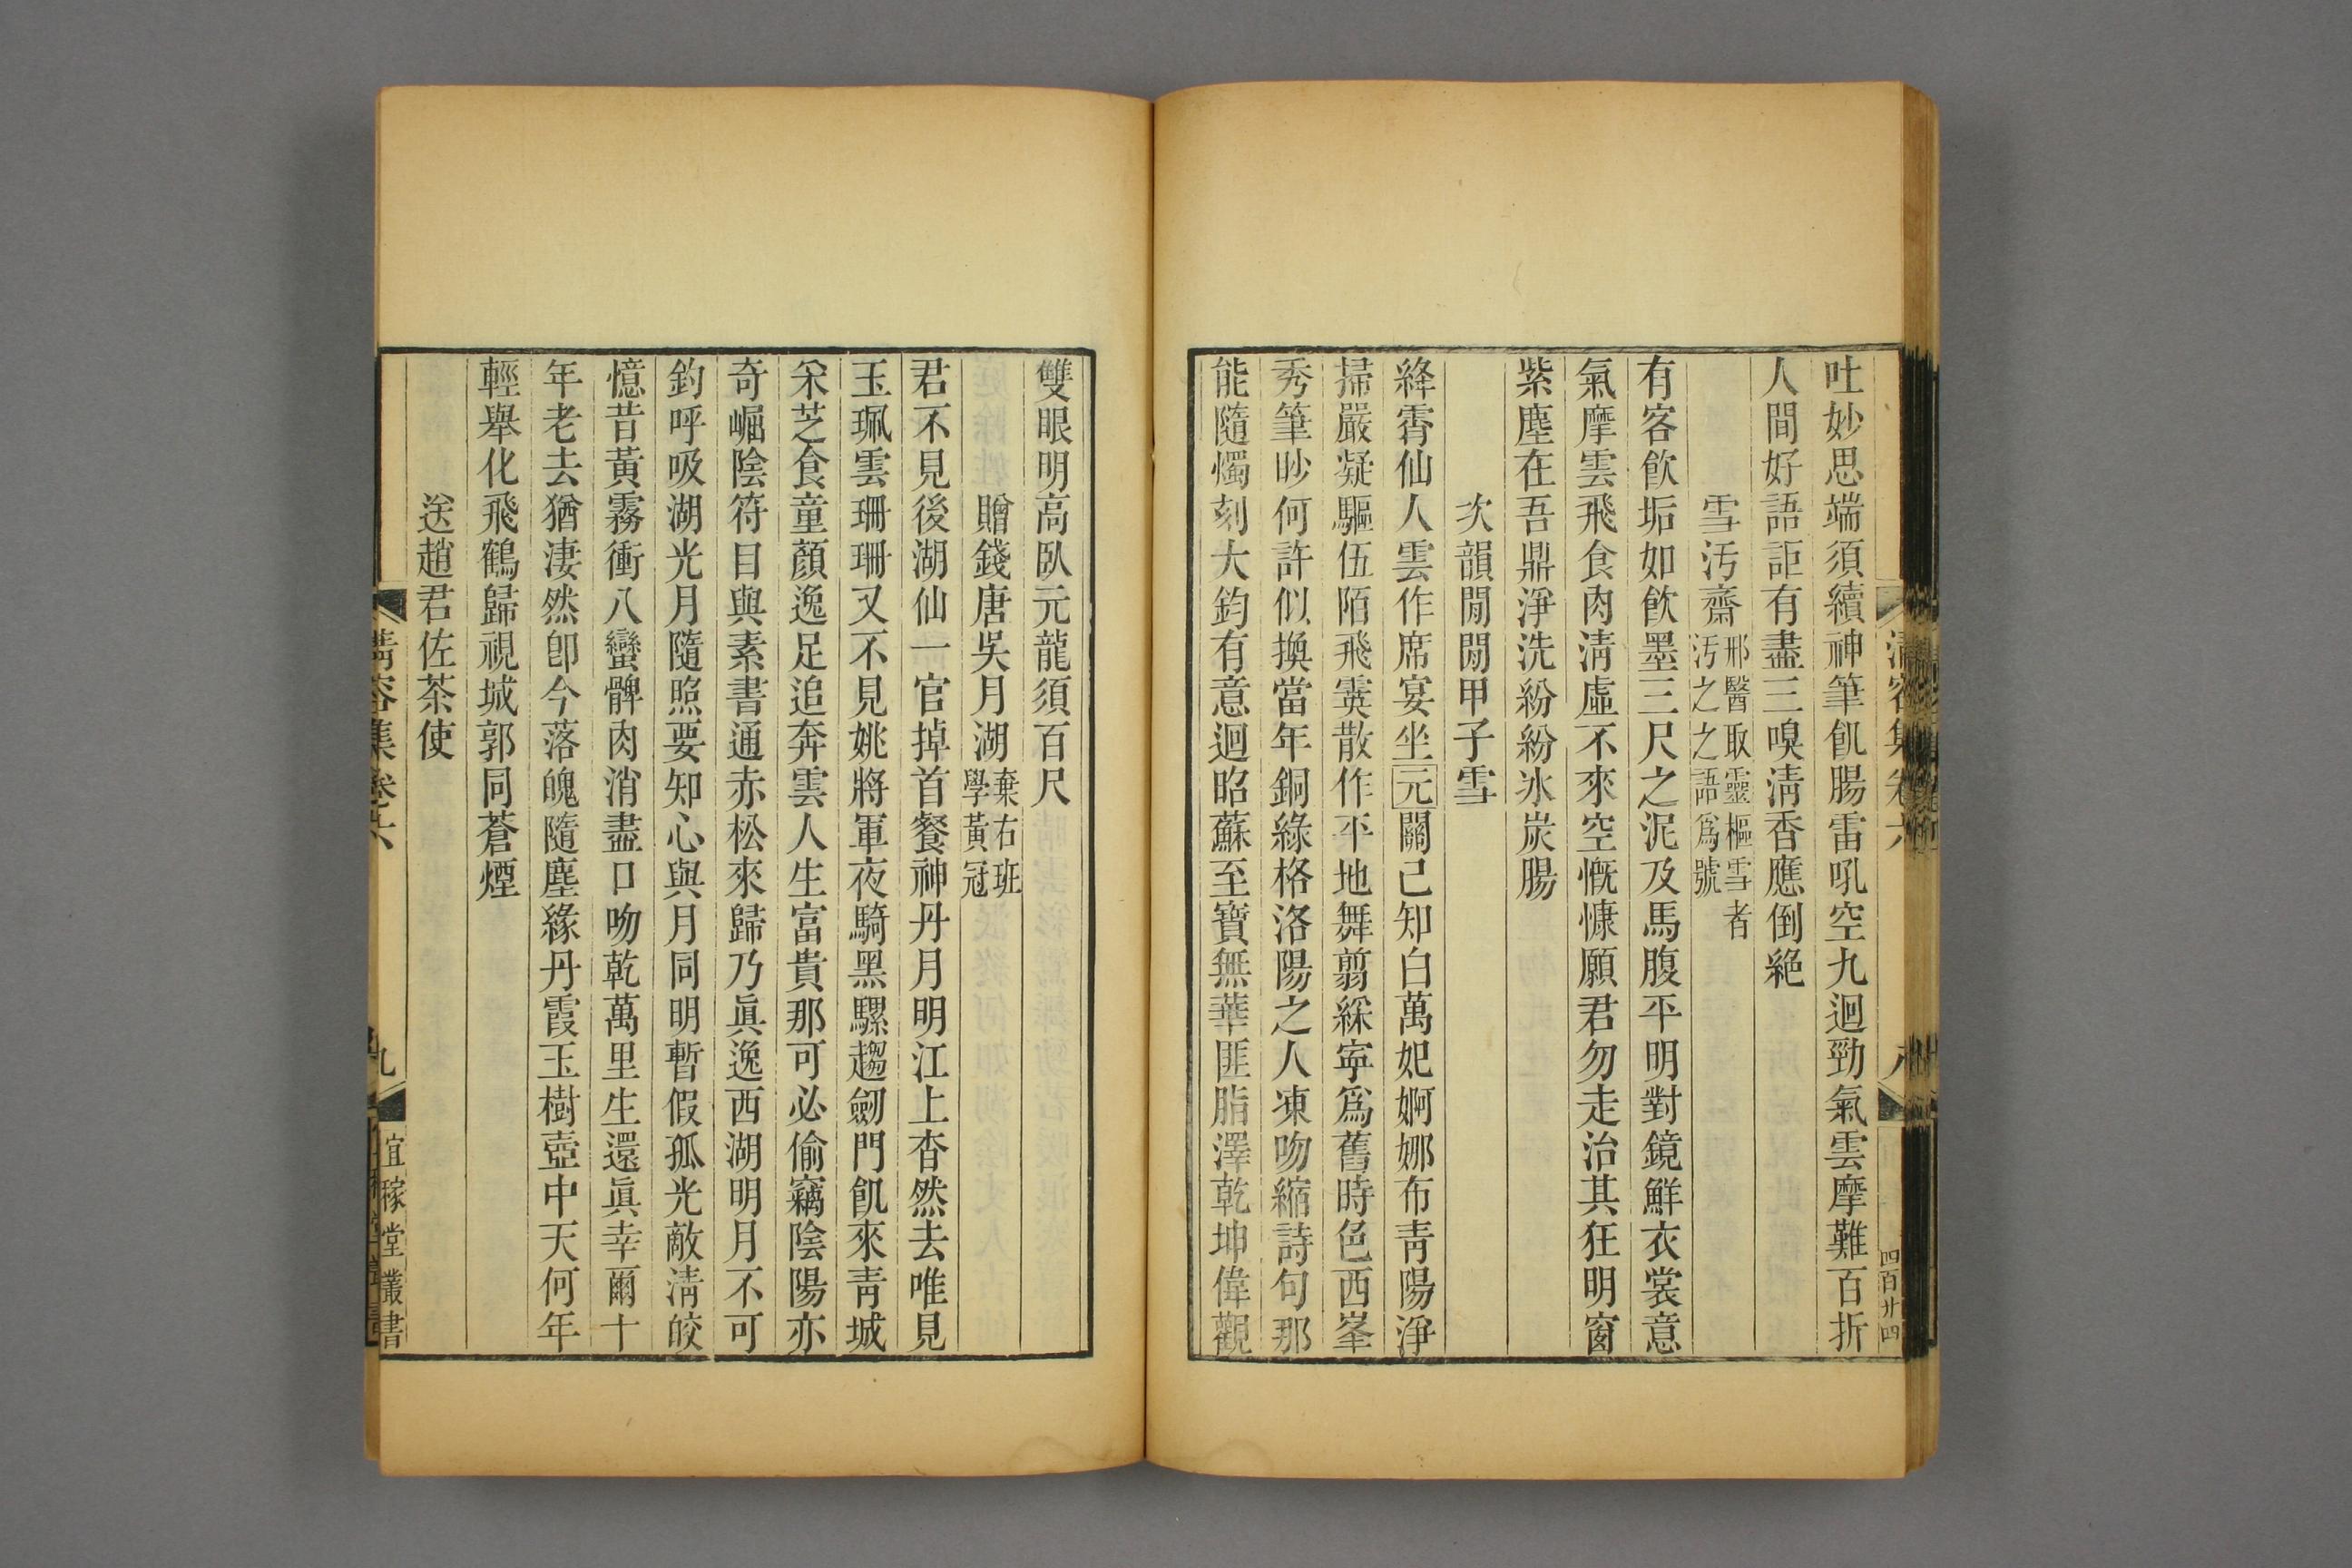 吐妙思端須續神筆飢腸雷吼空九迴勁氣雲摩難百折
人間好語詎有盡三嗅淸香應倒絶
雪汚齋邢醫取靈樞雪者汚之之語爲號
有客飮垢如飮墨三尺之泥及馬腹平明對鏡鮮衣裳意
氣摩雲飛食肉淸虛不來空慨慷願君勿走治其狂明窗
紫塵在吾鼎淨洗紛紛冰炭腸
次韻閒閒甲子雪
絳霄仙人雲作席宴坐元關己知白萬妃婀娜布靑陽淨
掃嚴凝驅伍陌飛霙散作平地舞翦綵寜爲舊時色西峯
秀筆眇何許似換當年銅綠格洛陽之人凍吻縮詩句那
能隨燭刻大鈞有意迴昭蘇至寶無華匪脂澤乾坤偉觀
淸容集卷六
八
四百廿四
雙眼明高臥元龍須百尺
贈錢唐吳月湖棄右班學黃冠
君不見後湖仙一官掉首餐神丹月明江上杳然去唯見
玉珮雲珊珊又不見姚將軍夜騎黑騾趨劒門飢來靑城
采芝食童顏逸足追奔雲人生富貴那可必偷竊陰陽亦
奇崛陰符目與素書通赤松來歸乃眞逸西湖明月不可
釣呼吸湖光月隨照要知心與月同明暫假孤光敵淸皎
憶昔黃霧衝八蠻髀肉消盡口吻乾萬里生還眞幸爾十
年老去猶淒然卽今落魄隨塵緣丹霞玉樹壺中天何年
輕舉化飛鶴歸視城郭同蒼煙
送趙君佐茶使
淸容集卷六
九
宜稼堂叢書